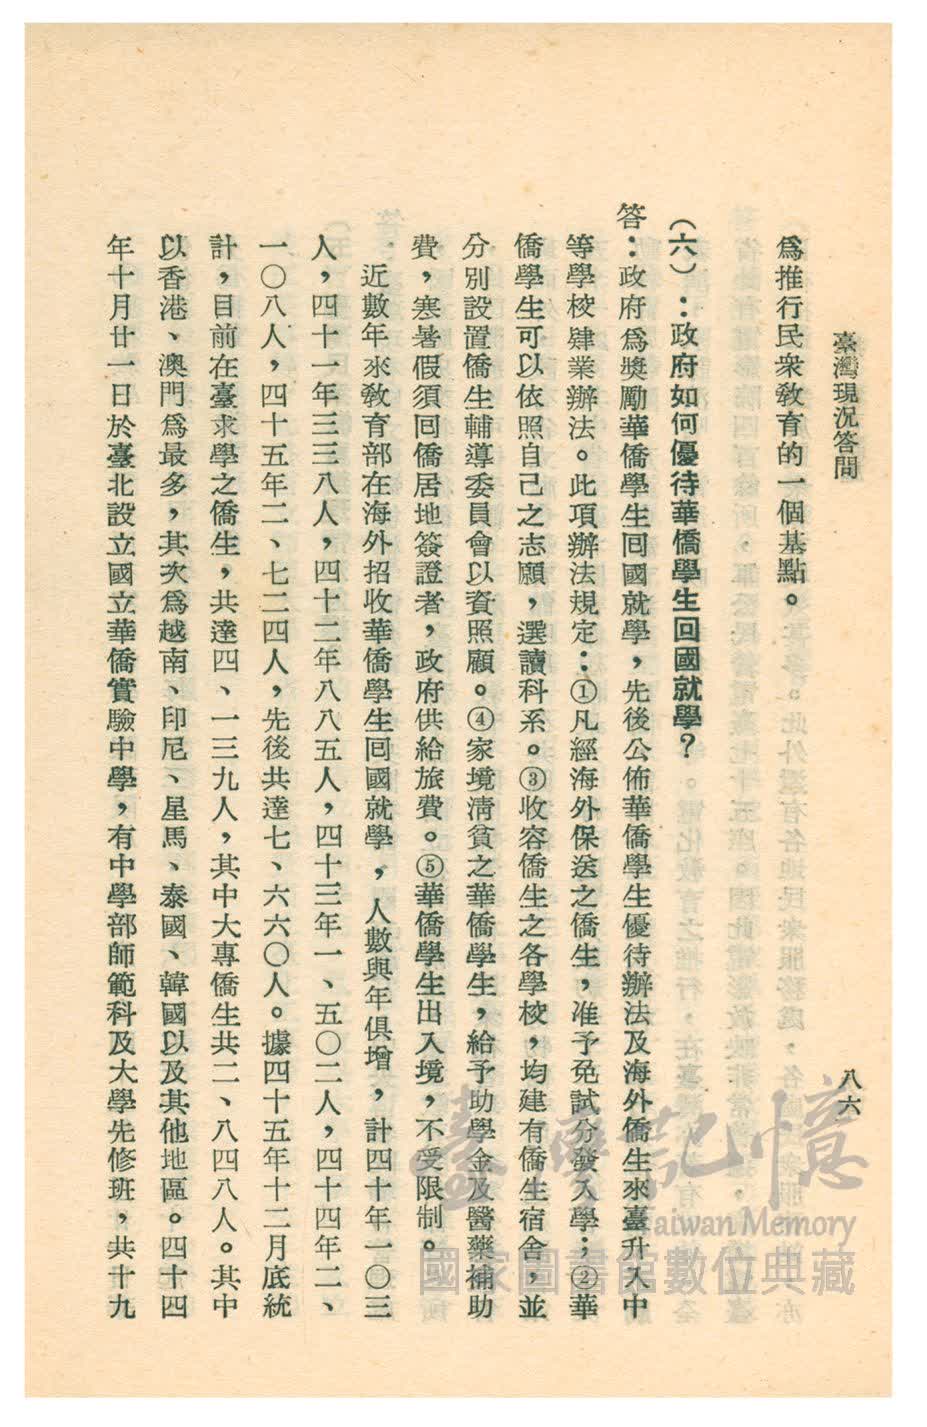 臺灣現況答問
八六
爲推行民衆敎育的一個基點。
（六）：政府如何優待華僑學生回國就學？
答：政府爲獎勵華僑學生回國就學，先後公佈華僑學生優待辦法及海外僑生來臺升入中
等學校肄業辦法。此項辦法規定：①凡經海外保送之僑生，准予免試分發入學；②華
僑學生可以依照自己之志願，選讀科系。③收容僑生之各學校，均建有僑生宿舍，並
分別設置僑生輔導委員會以資照顧。④家境淸貧之華僑學生，給予助學金及醫藥補助
費，寒暑假須回僑居地簽證者，政府供給旅費。⑤華僑學生出入境，不受限制。
近數年來敎育部在海外招收華僑學生回國就學，人數與年俱增，計四十年一〇三
人，四十一年三三八人，四十二年八八五人，四十三年一、五〇二人，四十四年二、
一〇八人，四十五年二、七二四人，先後共達七、六六〇人。據四十五年十二月底統
計，目前在臺求學之僑生，共達四、一三九人，其中大專僑生共二、八四八人。其中
以香港、澳門爲最多，其次爲越南、印尼、星馬、泰國、韓國以及其他地區。四十四
年十月廿一日於臺北設立國立華僑實驗中學，有中學部師範科及大學先修班，共十九
臺灣記憶
Taiwan Memory
國家圖書館數位典藏